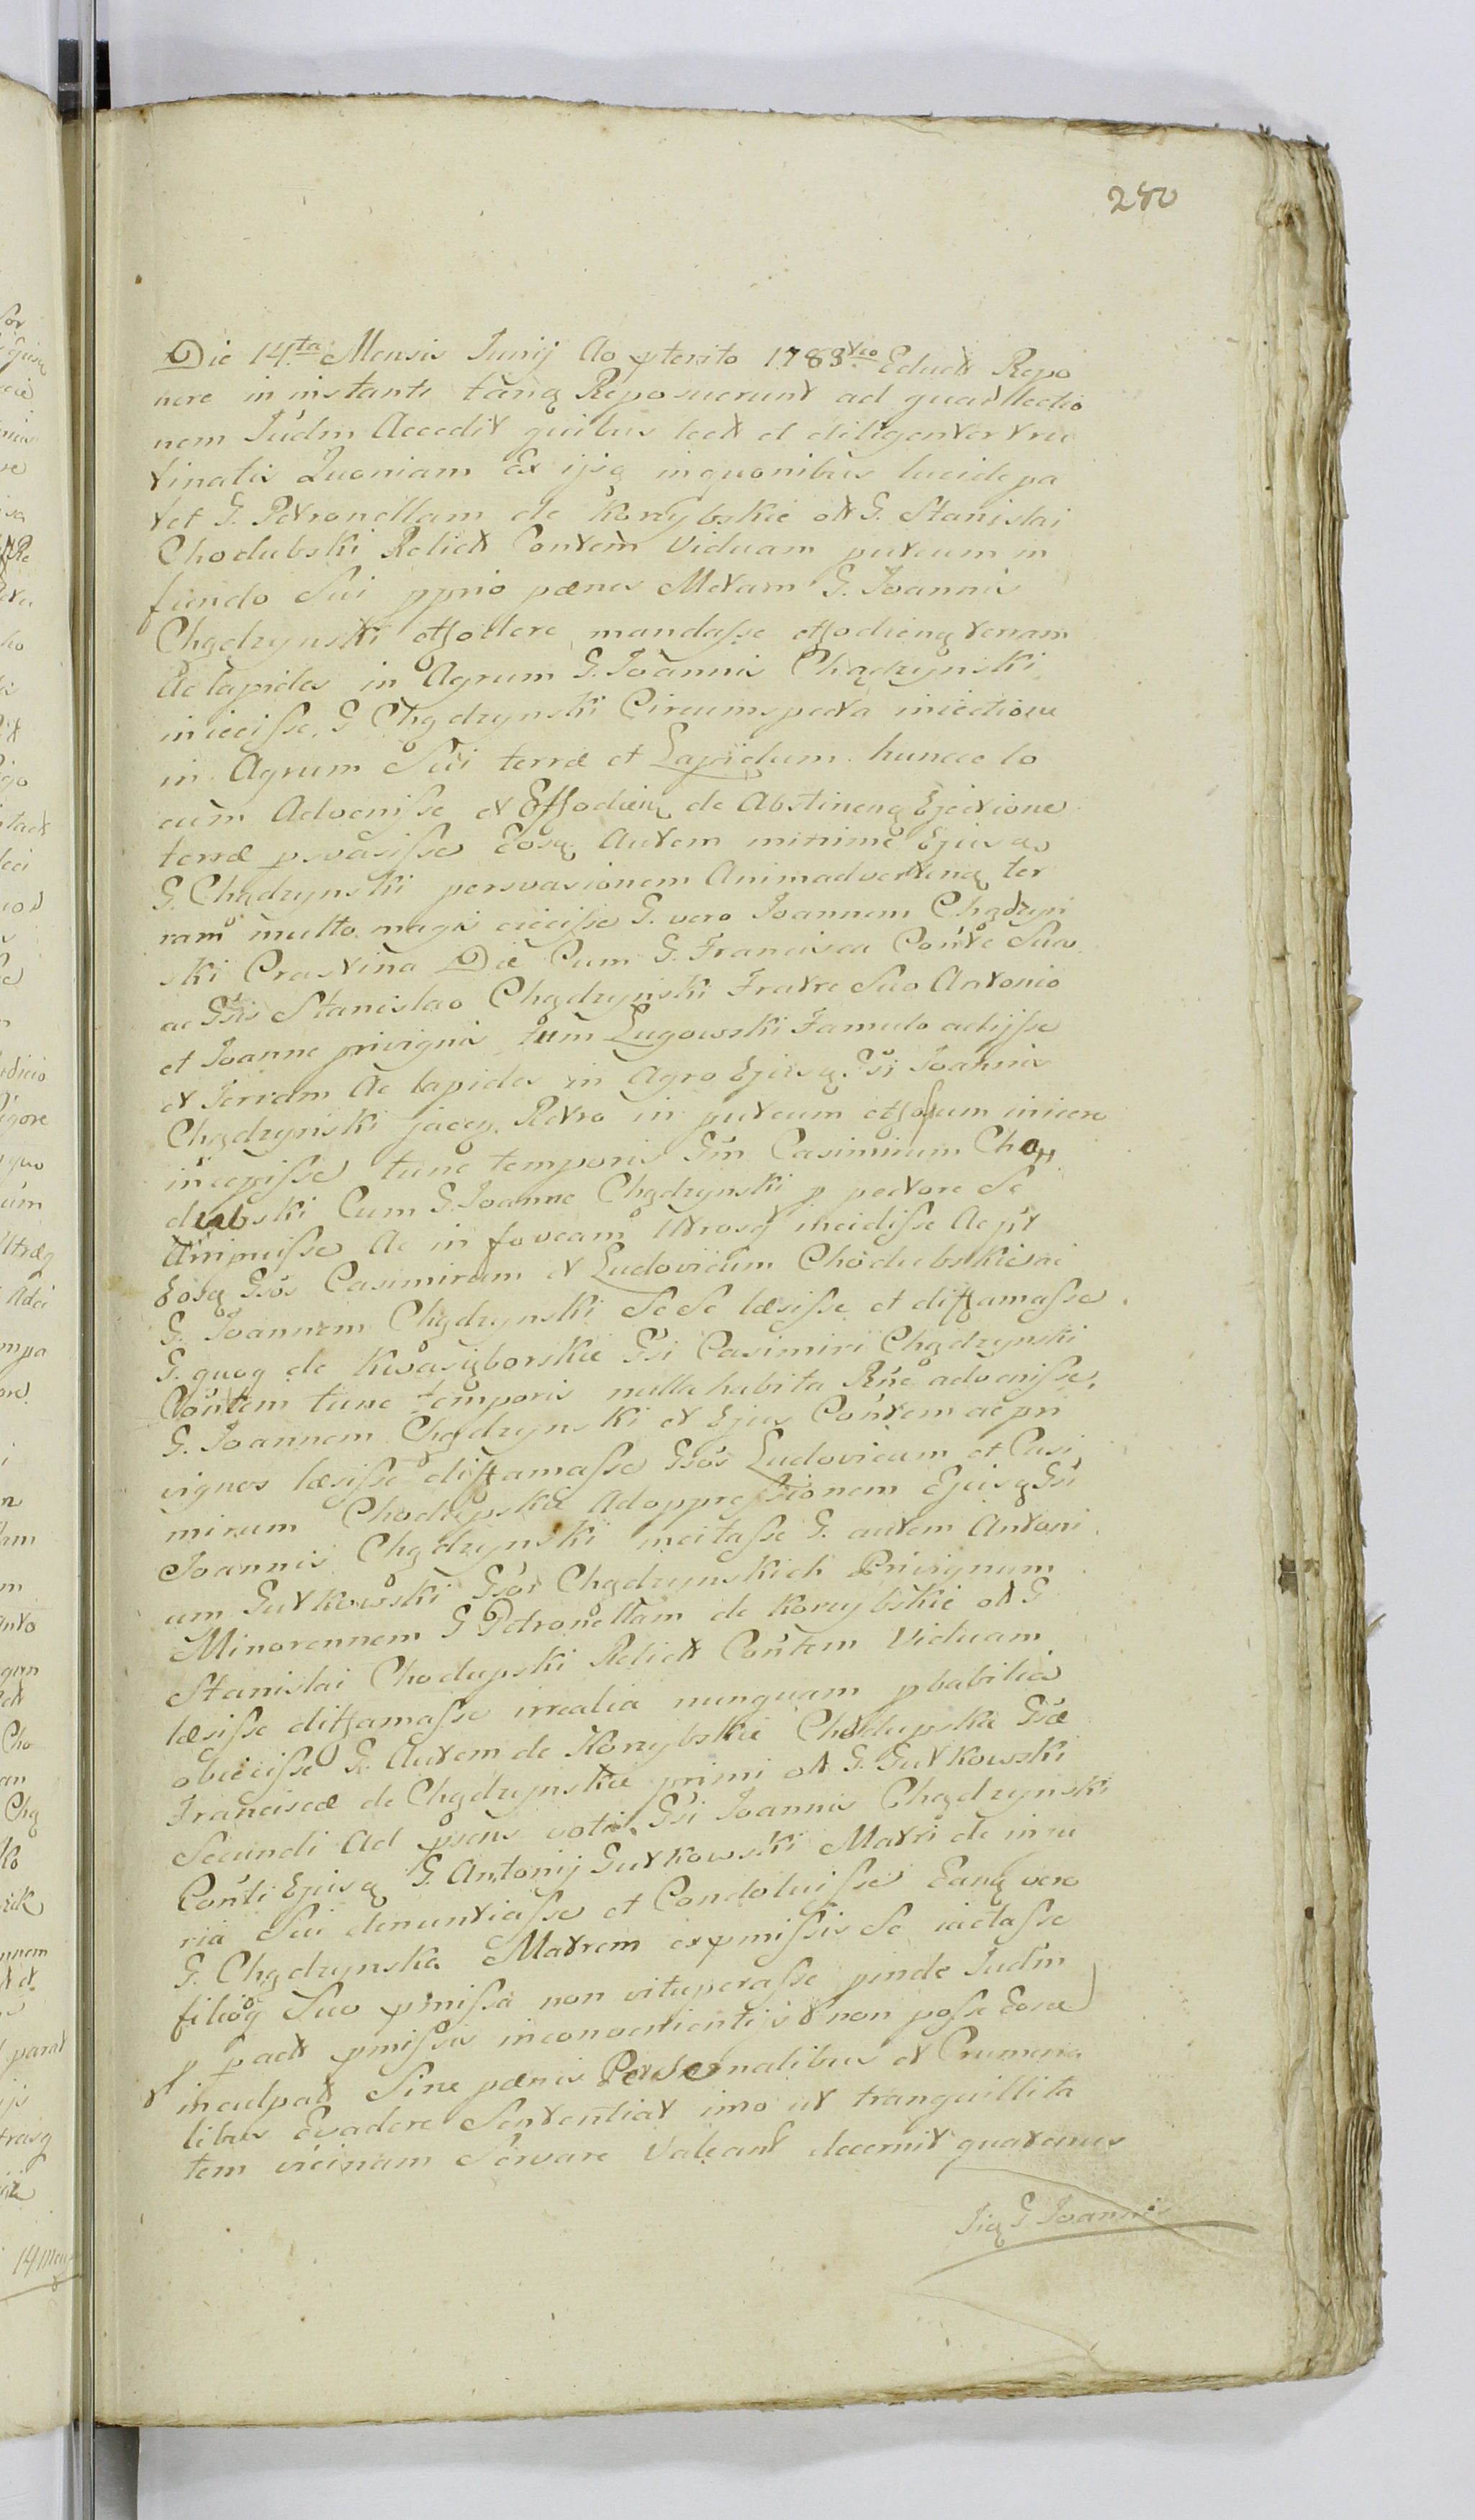 240
Die 14.ta Mensis Junij Ao pterito 1783tio Educt Repo
nere in instanti tanq Reposuerunt ad quar lectio
nem Judm Accedit quibus lect et diligenter tru
tinatis Quoniam Ex ijsq inquonibus lucide pa
tet G. Petronellam de Korzybskie olt G. Stanislai
Chodubski Relict Contem Viduam puteum in
fundo Sui pprio pænes Metam G. Joannis
Chądzynski effodere mandasse effodienq terram
Ac lapides in Agrum G. Joannis Chądzynski
iniecisse, G Chądzynski Circumspecta iniectione
in Agrum Sui terræ et Lapidum huncce lo
cum Advenisse et Effodien de Abstinenq Ejectione
terræ psvasisse Eosq Autem minime Ejusq
G. Chądzynski persvasionem Animadvertenq ter
ram multo magis eiecisse G. vero Joannem Chądzyn
ski Crastina Die Cum G. Francisca Conte Sua
ac Gsis Stanislao Chądzynski Fratre Suo Antonio
et Joanne privignis tum Lugowski Famulo adijsse
et Terram Ac lapides in Agro Ejusq Gsi Joannis
Chądzynski jacen Retro in puteum effosum iniicere
incepisse tunc temporis Gm Casimirum Cho
dubski Cum G. Joanne Chądzynski p pectore Se
Arripuisse Ac in foveam Utrosq incidisse Ac
Eosq Gsos Casimirum et Ludovicum Chodubskie ac
G. Joannem Chądzynski Se Se læsisse et diffamasse
G. quoq de Kwasiborskie Gsi Casimiri Chądzynski
Contem tunc temporis nulla habita Rne advenisse
G. Joannem Chądzynski et Ejus Contem ac pri
vignos læsisse diffamasse Gsos Ludovicum et Casi
mirum Chodupskie Ad oppressionem Ejusq Gsi
Joannis Chądzynski incitasse G. autem Antoni
um Gutkowski Gsor Chądzynskich Privignum
Minorennem G Petronellam de Korzybskie olt G
Stanislai Chodupski Relict Contem Viduam
læsisse diffamasse irrealia nunquam pbabilia
obiecisse G. Autem de Korzybskie Chodupska Gsæ
Franciscæ de Chądzynskie primi olt G. Gutkowski
Secundi Ad psens voti Gsi Joannis Chądzynski
Conti Ejusq G. Antonij Gutkowski Matri de inju
ria Sui denuntiasse et Condoluisse Eanq vero
G. Chądzynska Matrem ex pmissis Se iactasse
filioq Suo pmissa non vituperasse pinde Judm
p pact pmissis inconvenientijs et non posse Eosce
inculpat Sine pænis Personalibus et Crumena
libus Evadere Sententiat imo ut tranquillita
tem vicinam Servare Valeant decernit quatenus
Jiq G. Joannes